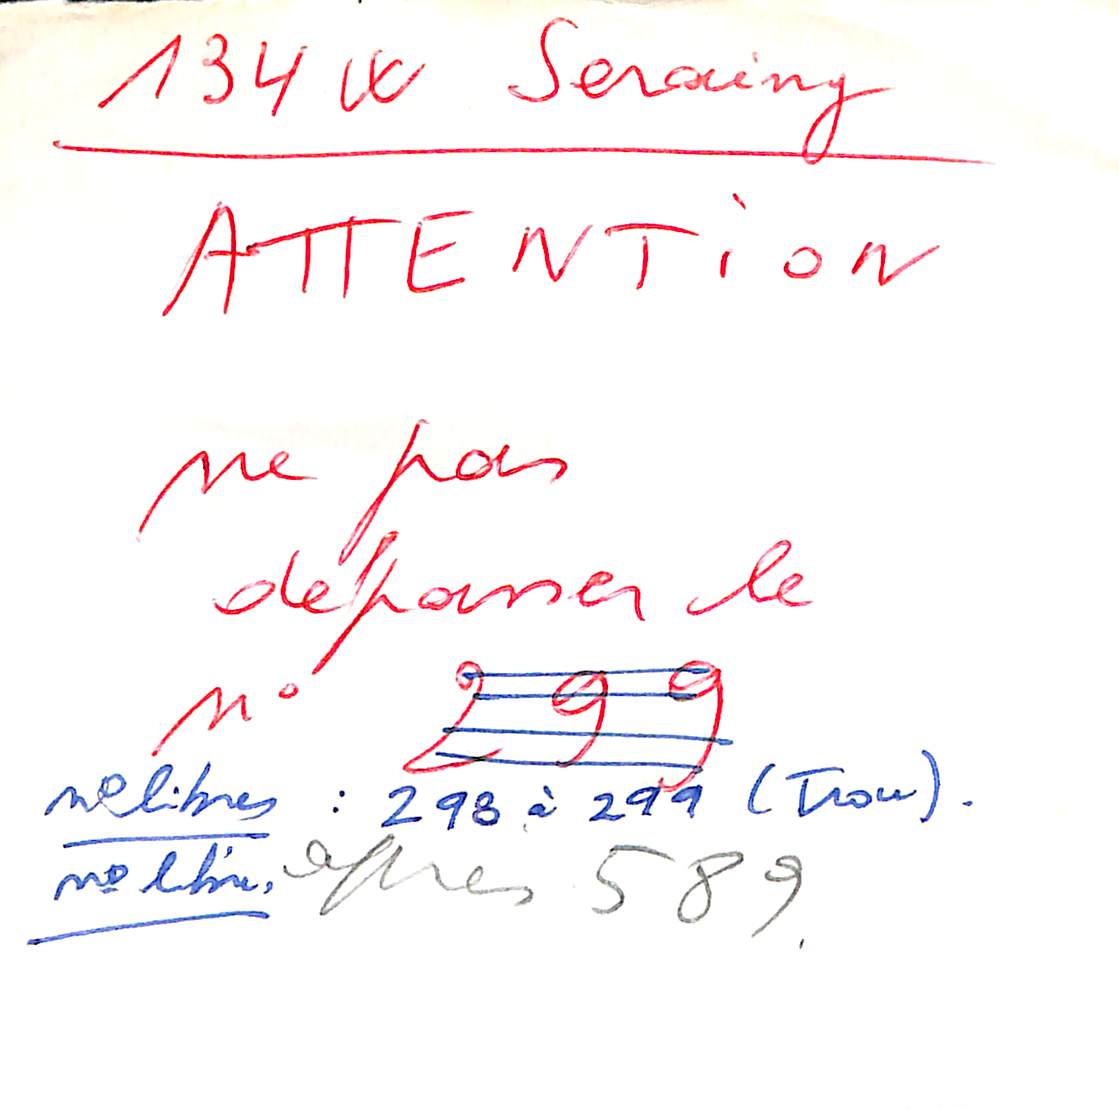 134 W Seraing
ATTENTiON
ne pas
depasser le
n° 299
n° libres : 298 à 299 (Trou).
n° libre, après 589.